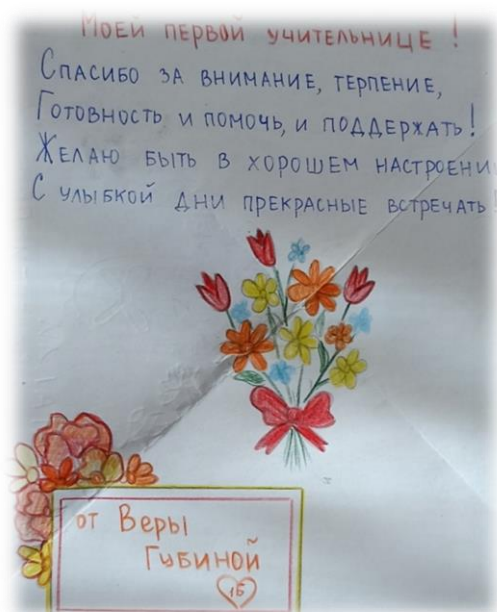 Моей первой учительнице!
Спасибо за внимание, терпение,
Готовность и помочь, и поддержать!
Желаю быть в хорошем настроени
С улыбкой дни прекрасные встречать!
от Веры
Губиной
1Б